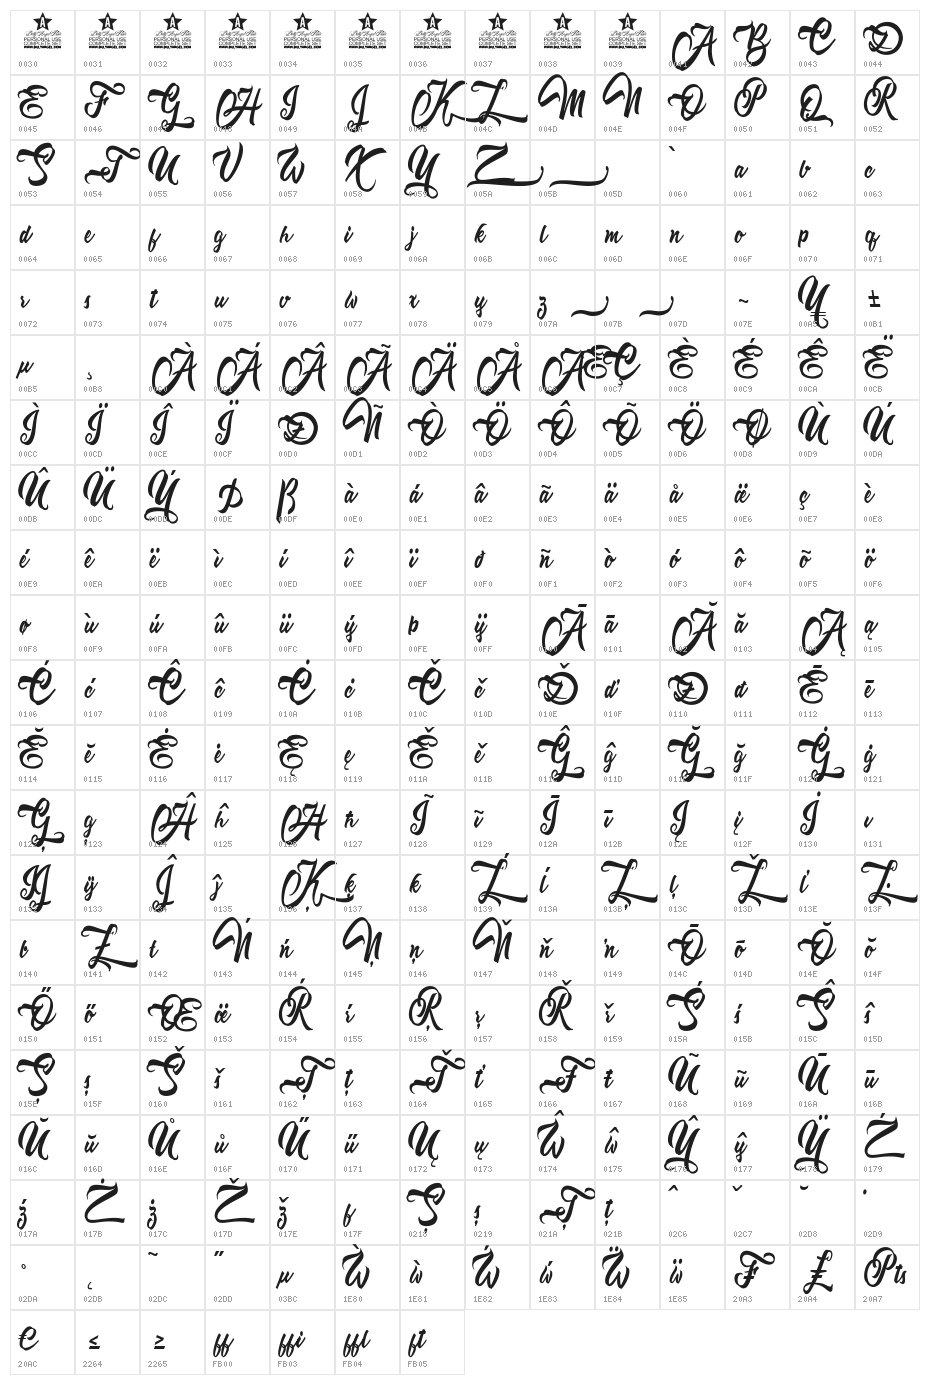 PERSONAL USE PERSONAL USE PERSONAL USE PERSONAL USE PERSONAL USE PERSONAL USE PERSONAL USE PERSONAL USE PERSONAL USE PERSONAL USE
COMPLETE SET COMPLETE SET COMPLETE SET COMPLETE SET COMPLETE SET COMPLETE SET COMPLETE SET COMPLETE SET COMPLETE SET COMPLETE SET
A B C D
0030 0031 0032 0033 0034 0035 0036 0037 0038 0039 0041 0042 0043 0044
E F G H I J K L M N O P Q R
0045 0046 0047 0048 0049 004A 004B 004C 004D 004E 004F 0050 0051 0052
S T U V W X Y Z ` a b c
0053 0054 0055 0056 0057 0058 0059 005A 005B 005D 0060 0061 0062 0063
d e f g h i j k l m n o p q
0064 0065 0066 0067 0068 0069 006A 006B 006C 006D 006E 006F 0070 0071
r s t u v w x y z ~ ¥ ±
0072 0073 0074 0075 0076 0077 0078 0079 007A 007B 007D 007E 00A5 00B1
µ ¸ À Á Â Ã Ä Å Æ Ç È É Ê Ë
00B5 00B8 00C0 00C1 00C2 00C3 00C4 00C5 00C6 00C7 00C8 00C9 00CA 00CB
Ì Ï Î Ï Ð Ñ Ò Ö Ô Õ Ö Ø Ù Ú
00CC 00CD 00CE 00CF 00D0 00D1 00D2 00D3 00D4 00D5 00D6 00D8 00D9 00DA
Û Ü Ý Þ ß à á â ã ä å æ ç è
00DB 00DC 00DD 00DE 00DF 00E0 00E1 00E2 00E3 00E4 00E5 00E6 00E7 00E8
é ê ë ì í î ï ð ñ ò ó ô õ ö
00E9 00EA 00EB 00EC 00ED 00EE 00EF 00F0 00F1 00F2 00F3 00F4 00F5 00F6
ø ù ú û ü ý þ ÿ Ā ā Ă ă Ą ą
00F8 00F9 00FA 00FB 00FC 00FD 00FE 00FF 0100 0101 0102 0103 0104 0105
Ć ć Ĉ ĉ Ċ ċ Č č Ď ď Đ đ Ē ē
0106 0107 0108 0109 010A 010B 010C 010D 010E 010F 0110 0111 0112 0113
Ĕ ĕ Ė ė Ę ę Ě ě Ĝ ĝ Ğ ğ Ġ ġ
0114 0115 0116 0117 0118 0119 011A 011B 011C 011D 011E 011F 0120 0121
Ģ ģ Ĥ ĥ Ħ ħ Ĩ ĩ Ī ī Į į İ ı
0122 0123 0124 0125 0126 0127 0128 0129 012A 012B 012E 012F 0130 0131
Ĳ ĳ Ĵ ĵ Ķ ķ ĸ Ĺ ĺ Ļ ļ Ľ ľ Ŀ
0132 0133 0134 0135 0136 0137 0138 0139 013A 013B 013C 013D 013E 013F
ŀ Ł ł Ń ń Ņ ņ Ň ň ŉ Ō ō Ŏ ŏ
0140 0141 0142 0143 0144 0145 0146 0147 0148 0149 014C 014D 014E 014F
Ő ő Œ œ Ŕ ŕ Ŗ ŗ Ř ř Ś ś Ŝ ŝ
0150 0151 0152 0153 0154 0155 0156 0157 0158 0159 015A 015B 015C 015D
Ş ş Š š Ţ ţ Ť ť Ŧ ŧ Ũ ũ Ū ū
015E 015F 0160 0161 0162 0163 0164 0165 0166 0167 0168 0169 016A 016B
Ŭ ŭ Ů ů Ű ű Ų ų Ŵ ŵ Ŷ ŷ Ÿ Ź
016C 016D 016E 016F 0170 0171 0172 0173 0174 0175 0176 0177 0178 0179
ź Ż ż Ž ž ſ Ș ș Ț ț ˆ ˇ ˘ ˙
017A 017B 017C 017D 017E 017F 0218 0219 021A 021B 02C6 02C7 02D8 02D9
˚ ˛ ˜ ˝ μ Ẁ ẁ Ẃ ẃ Ẅ ẅ ₣ ₤ ₧
02DA 02DB 02DC 02DD 03BC 1E80 1E81 1E82 1E83 1E84 1E85 20A3 20A4 20A7
€ ≤ ≥ ff ffi ffl ft
20AC 2264 2265 FB00 FB03 FB04 FB05